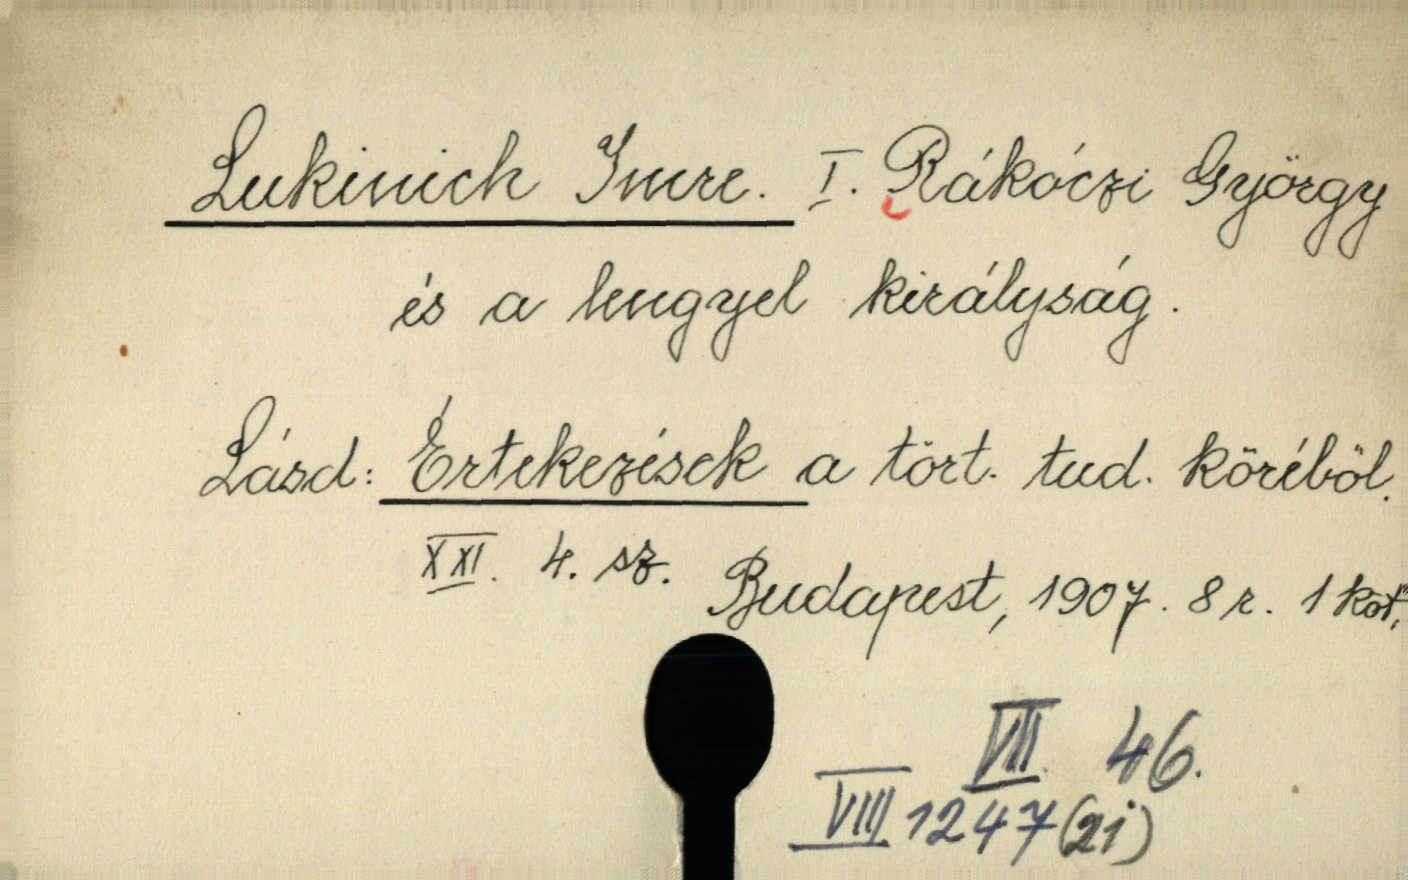 Lukinich Imre. I. Rákóczi György
és a lengyel királyság.
Lásd: Értekezések a tört. tud. köréből.
XXI. 4. sz. Budapest, 1907. 8 r. 1 köt,
VII. 46.
VIII 1247 (21)